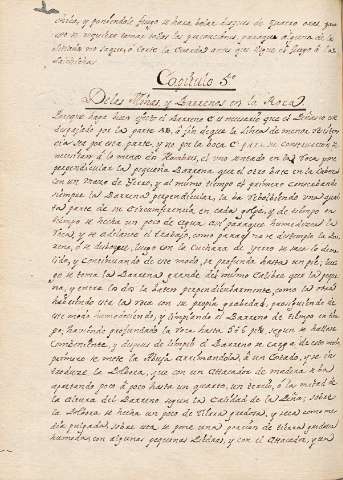 y poniendole fuego se hace bolar despues de quatro oras, pero
uso se requiere tomar todas las precauciones, para que alguna de la
no saque, ò corte la Cuerda antes que llegue el fuego à las
Salchichas.
Capitulo 5º
De las Minas, y Barrenos en la Roca
Para que haga buen efecto el Barreno es necesario que el Peñasco esté
escarpado por la parte AB, à fin de que la linea de menor resisten
cia sea por esta parte, y no por la boca C para su construccion se
necesitan à lo menos dos Hombres, el uno sentado en la roca pone
perpendicular la pequeña Barrena que el otro bate en la Caveza
con un Mazo de Yerro, y al mismo tiempo el primero conservando
siempre la Barrena perpendicular, la ha rebolbiendo una quar
ta parte de su circumferencia en cada golpe, y de tiempo en
tiempo se hecha un poco de agua assi para que humedezca la
roca, y se adelante el trabajo, como para que no se destemple la Ba
rena, ò se desboque, luego con la Cuchara de yerro se saca lo de
lido, y continuando de ese modo, se profunda hasta un pie, lue
go se toma la Barrena grande del mismo Calibre que la peque
ña, y entre los dos la baten perpendicularmente, como la otra
haciendo que la roca con su propia gravedad, prosiguiendo de
ese modo humedeciendo, y limpiando el Barreno de tiempo en tiem
po, haciendo profundado la roca hasta 5 ò 6 pies segun se hallare
combeniente, y despues de limpio el Barreno se carga de este modo,
primero se mete la Abuja arrimandola à un Costado, y se in
troduce la Polbora, que con un Atacador de madera se ba
apretando poco à poco hasta un quarto, un tercio, ò la mitad de
la altura del Barreno segun la Calidad de la Peña; sobre la
la Polbora se hecha un poco de tierra gredosa, y seca como me
dia pulgada, sobre esta se pone una porcion de tierra gredosa
humeda, con algunas pequeñas Piedras, y con el Atacador, y un